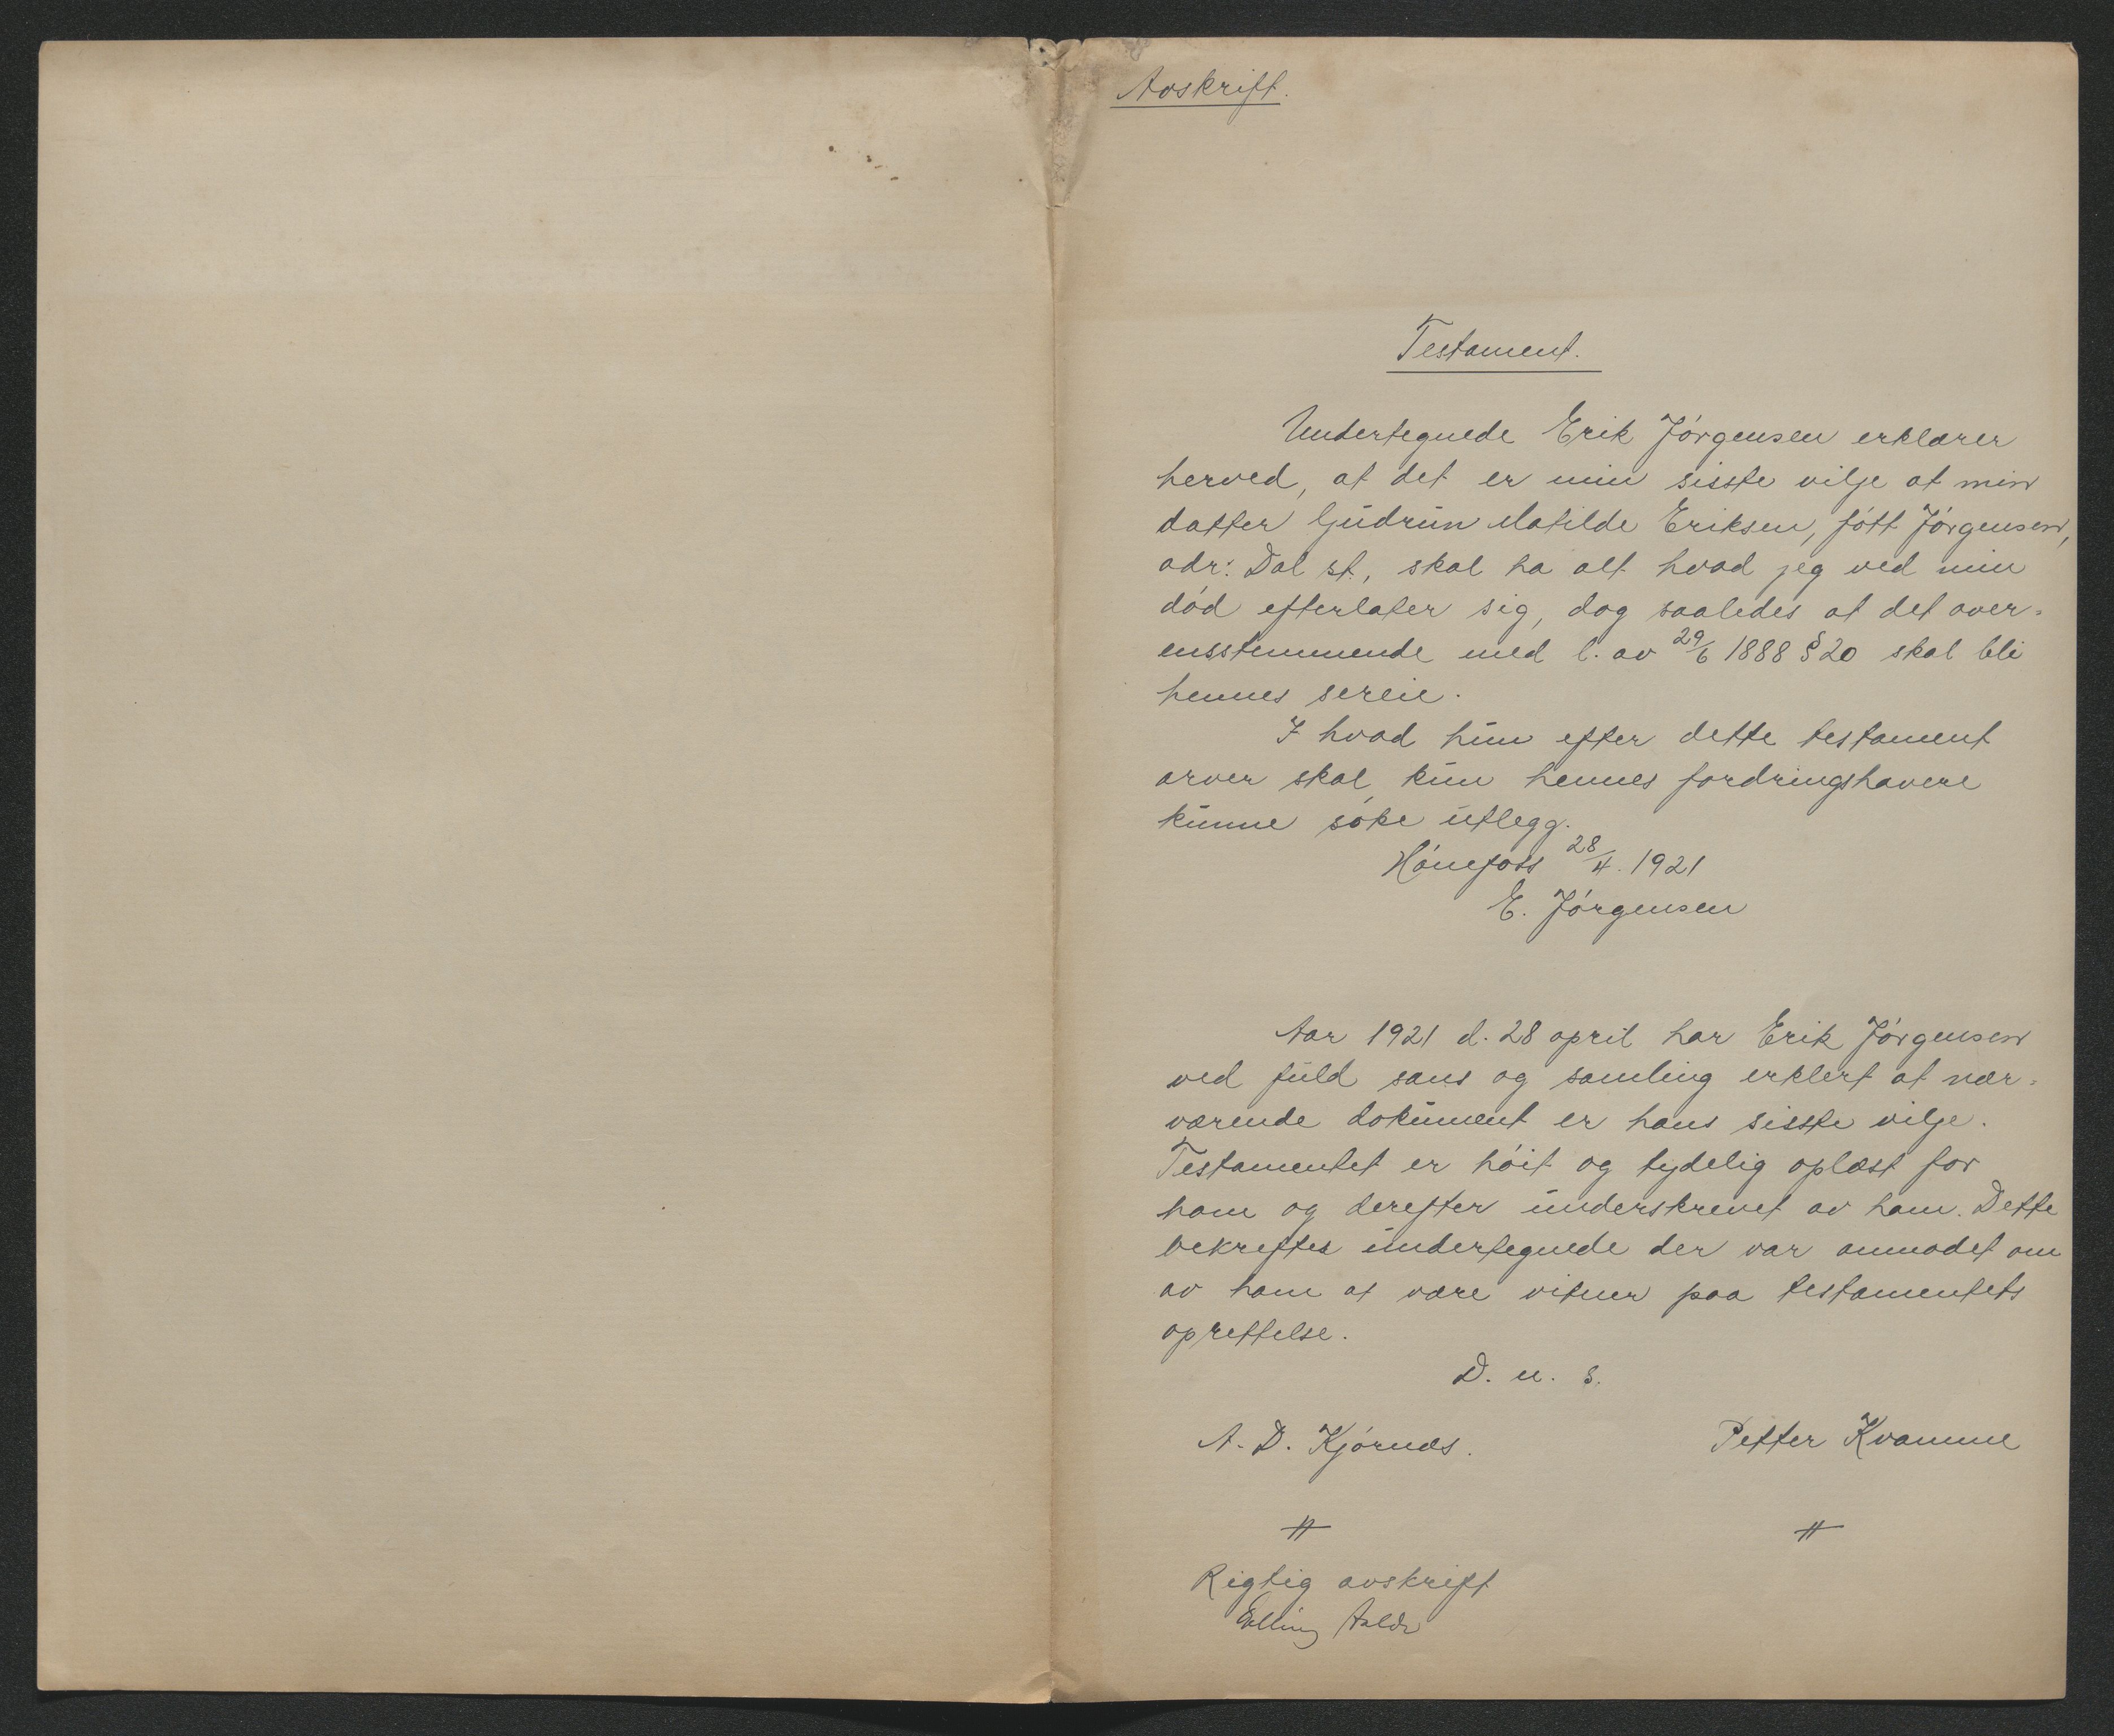 Avskrift.
Testament.
Undertegnede Erik Jörgensen erklærer
herved, at det er min sisste vilje at min
datter Gudrun Matilde Eriksen, född Jörgensen,
adr: Dal st, skal ha alt hvad jeg ved min
död efterlater sig, dog saaledes at det over-
ensstemmende med l. av 29/6 1888 § 20 skal bli
hennes sereie.
I hvad hun efter dette testament
arver skal kun hennes fordringshavere
kunne söke utlegg.
Hönefoss 28/4. 1921
E. Jörgensen
Aar 1921 d. 28 april har Erik Jörgensen
ved fuld sans og samling erklert at nær-
værende dokument er hans sisste vilje.
Testamentet er höit og tydelig oplæst for
ham og derefter underskrevet av ham. Dette
bekreftes undertegnede der var anmodet om
av ham at være vitner paa testamentets
oprettelse.
D. u. s.
A. D. Kjörnæs. Petter Kvamme
Rigtig avskrift
Erling